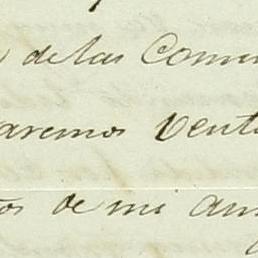 de las Conve
aremos Vent
os de mi am